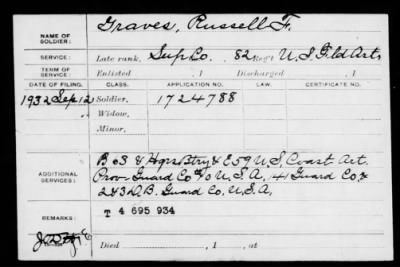 NAME OF SOLDIER: Graves, Russell F.
SERVICE: Late rank, Sup Co. 82 Reg't U. S. Fld Art.
TERM OF SERVICE: Enlisted , 1 Discharged , 1
DATE OF FILING. CLASS. APPLICATION NO. LAW. CERTIFICATE NO.
1932 Sep 12 Soldier, 1724788
Widow,
Minor,
ADDITIONAL SERVICES: B & S & Hqrs Btry & E 59 U. S. Coast Art.
Prov Guard Co #10 U. S. A, 41 Guard Co &
2 & 3 D. B. Guard Co. U. S. A,
REMARKS: T 4 695 934
Died , 1 , at